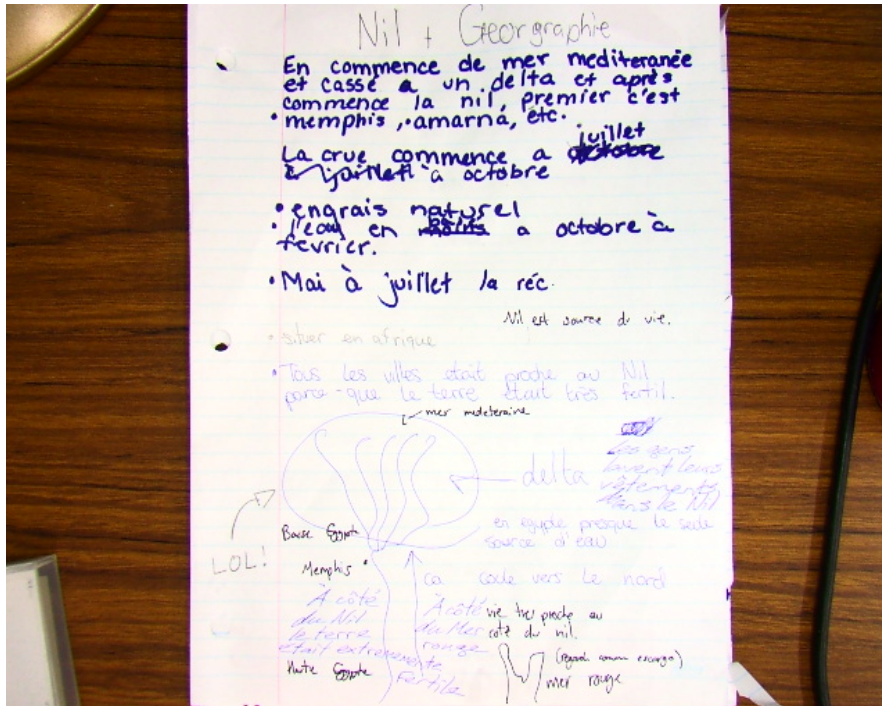 Nil + Georgraphie
En commence de mer mediteranée
et casse a un delta et après
commence la nil, premier c'est
• memphis, • amarna, etc.
juillet
La crue commence a octobre
juillet à octobre
• engrais naturel
• l'eau en a octobre à
fevrier.
• Mai à juillet la réc.
Nil est source du vie.
• situer en afrique
• Tous les villes etait proche au Nil
parce-que le terre était très fertil.
mer mediteraine
Les gens
lavent leurs
vêtements
dans le Nil
delta
en egypte presque le seule
source d'eau
LOL!
Basse Egypte
Memphis •
ca coule vers le nord
À côté
du Nil
le terre
était extremement
Fertile
À côté
du Mer
rouge
vie tres proche au
coté du nil.
Haute Egypte
mer rouge